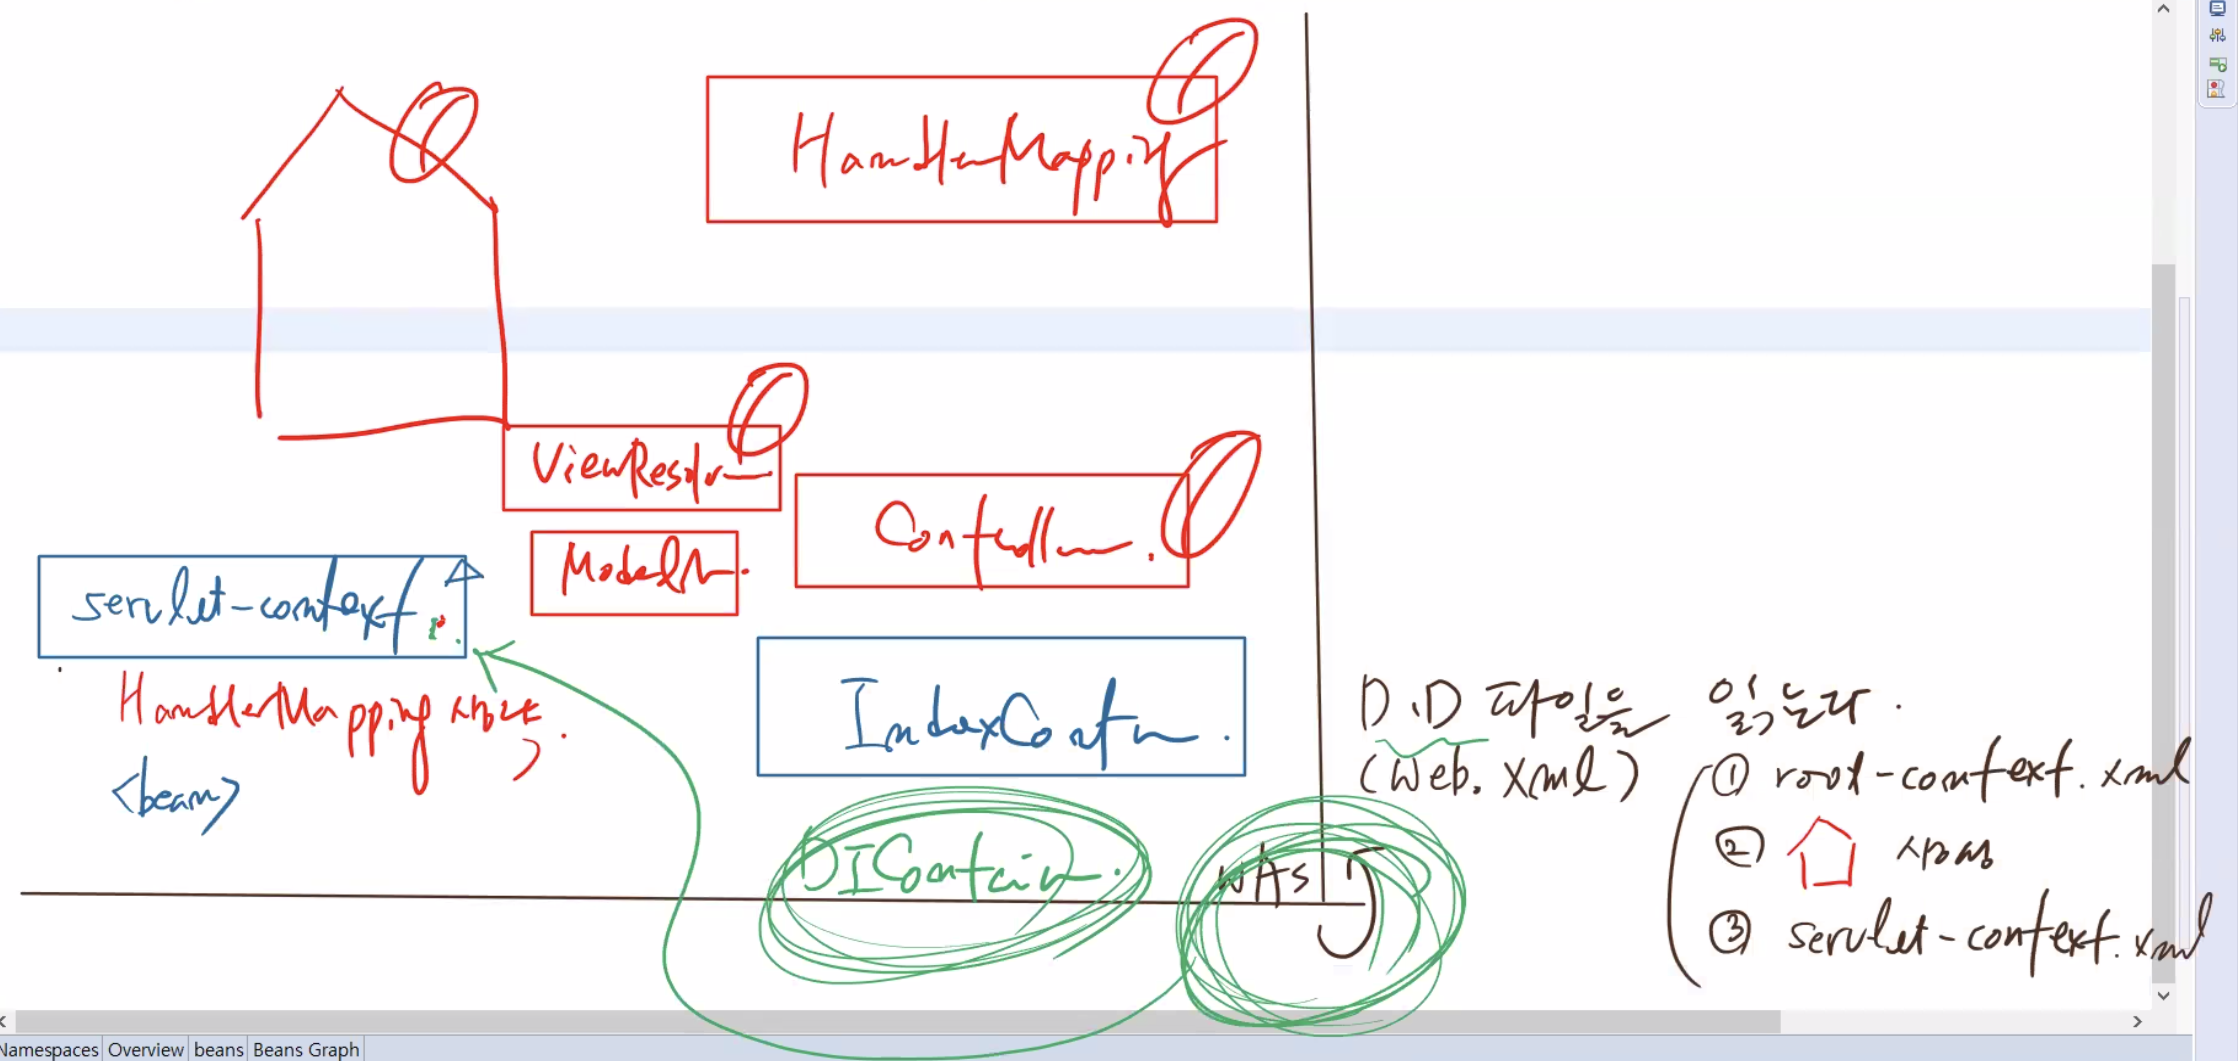 HandlerMapping
ViewResolver
Controller.
servlet-context.
HandlerMapping
<bean>
IndexContr
DIContain.
WAS
D.D 파일을 읽는다.
(web.xml)
① root-context.xml
② 생성
③ servlet-context.xml
Namespaces Overview beans Beans Graph